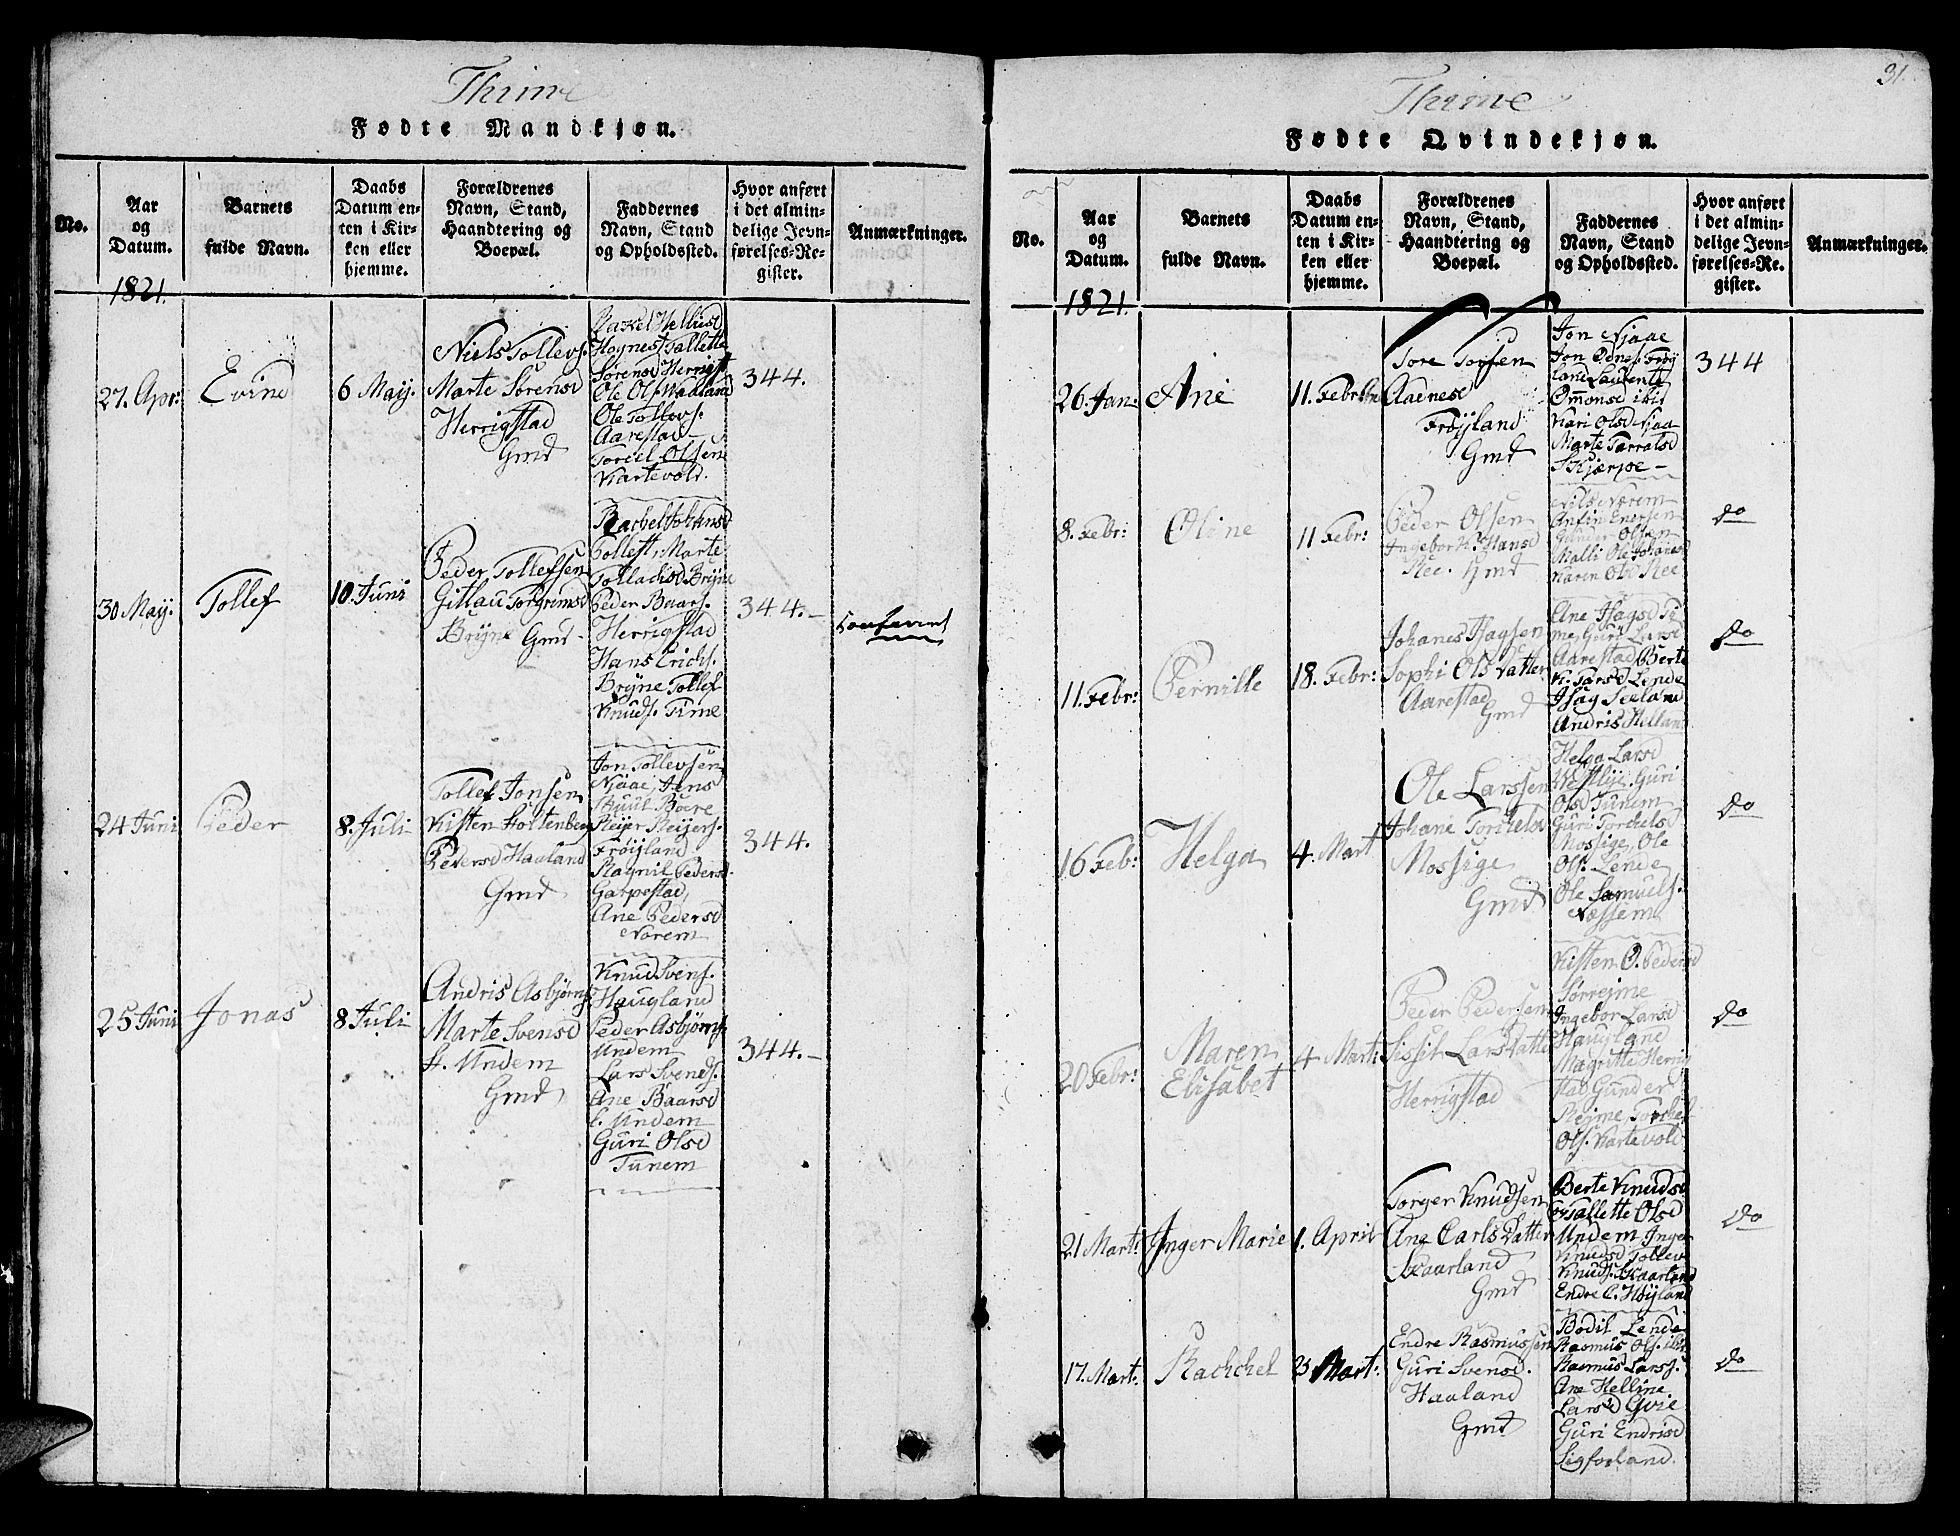 Thime
Fødte Mandkjøn.
No.
Aar
og
Datum.
Barnets
fulde Navn.
Daabs
Datum en-
ten i Kir-
ken eller
hjemme.
Forældrenes
Navn, Stand,
Haandtering og
Boepæl.
Faddernes
Navn, Stand
og Opholdssted.
Hvor anført
i det almin-
delige Jevn-
førelses-Re-
gister.
Anmærkninger.
1821.
27. Apr:
Evind
6 Maij.
Niels Tollevs.
Marte Sørensd
Herrigstad
Gmd
Hognest, Tallette
Sørensd Herrigst
Ole Ols. Wadland
Ole Tollevs.
Aarestad
Torcel Olsen
Kartevold.
344.
30 Maij.
Tollef
10. Juni
Peder Tollefsen
Gitlau Torgrimsd
Brÿne Gmd
Rachel Johansd
Tollest, Marte
Brÿne
Peder Baars.
Herrigstad
Hans Erichs.
Brÿne Tollef
Knuds. Time
344.-
24 Juni
Peder
8. Juli
Tollef Jonsen
Kisten Soltenberg
Pedersd Haaland
Gmd
Jon Tollevsen
Njaae, Jens
Skuul Boere
Reijer Reijers.
Frøijland
Ragnil Pedersd
Garpestad,
Ane Pedersd
Norem
344.
25 Juni
Jonas
8 Juli
Andris Asbjørns
Marte Svensd
L. Undem
Gmd
Knud Svens.
Haugland
Peder Asbjørns.
Undem
Lars Svends.
Ane Baarsd
L. Undem
Guri Olsd
Tunem
344.-
31.
Thime
Fødte Qvindekjøn.
No.
Aar
og
Datum.
Barnets
fulde Navn.
Daabs
Datum en-
ten i Kir-
ken eller
hjemme.
Forældrenes
Navn, Stand,
Haandtering og
Boepæl.
Faddernes
Navn, Stand
og Opholdssted.
Hvor anført
i det almin-
delige Jevn-
førelses-Re-
gister.
Anmærkninger.
1821.
26. Jan:
Ane
11. Febr:
Tore
Aanesd
Frøijland
Gmd
Jon Njaae
Jon Odnes. Frøij
land Laurentse
Omonsd ibid
Kari Olsd Njaa
Marte Tarralsd
Skjærpe
344
8. Febr:
Oline
11 Febr:
Peder Olsen
Ingebor K. Hansd
Ree. Gmd
Nils Nærem
Anfin Enersen
Gunder Olsen
Malli Ole Johanesd
Karen Olsd Ree
do
11. Febr:
Pernille
18. Febr:
Johanes Isagsen
Sophi Ols Datter
Aarestad
Gmd
Ane Isagsd Ti
me, Guri Larsd
Aarestad, Berte
K. Larsd Lende
Isag Seeland
Andris Helland
do
16 Feb:
Helga
4. Mart
Ole Larssen
Johane Torchelsd
Mossige
Gmd
Helga Larsd
Westlye, Guri
Olsd Tunem
Guri Torchelsd
Mossige, Ole
Ols. Lende
Ole Samuels.
Næssem
do
20 Febr:
Maren
Elisabet
4 Mart:
Peder Pedersen
Sissil Lars Datter
Herrigstad
Kisten O. Pedersd
Sørrejme
Ingebor Larsd
Haugland
Magritte Herrig
stad Gunder
Rejme, Torchel
Ols. Kartevold
do
21 Mart:
Inger Marie
1. April
Torger Knudsen
Ane Carls Datter
Skaarland
Gmd
Berte Knudsd
Tallette Olsd
Undem Inger
Knudsd Tollev
Knuds. Skaarland
Endre C. Høijland
do
17. Mart:
Rachchel
25 Mart:
Endre Rasmussen
Guri Svensd.
Haaland
Gmd
Bodil Lende
Rasmus Ols. ibid
Rasmus Larss.
Ane Helline
Larsd Qvie
Guri Endrisd
Sigforland.
do